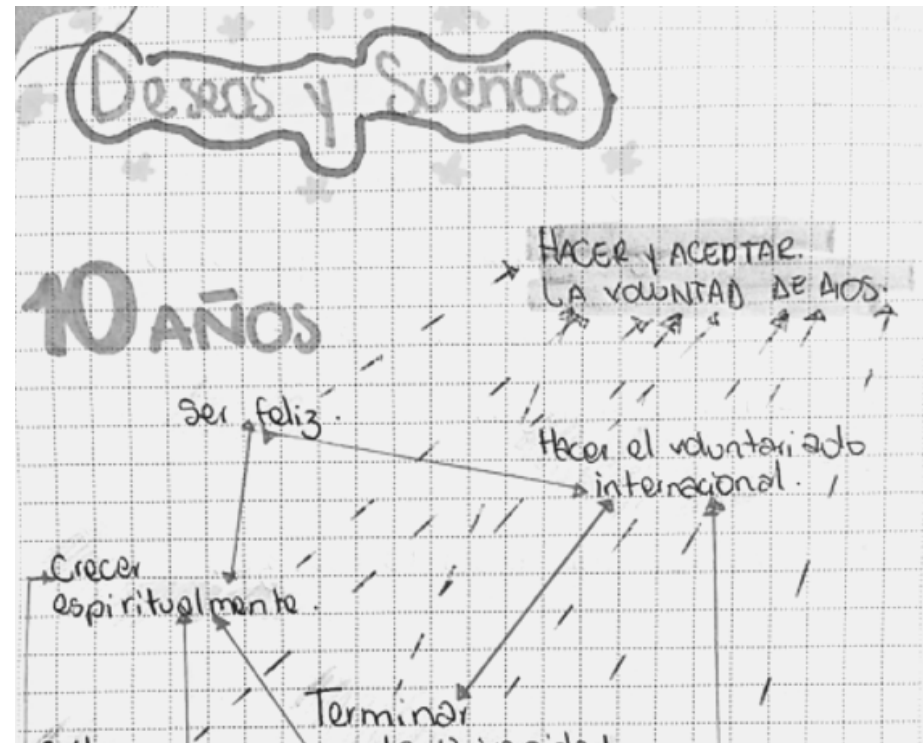 Deseos y Sueños
HACER Y ACEPTAR.
LA VOLUNTAD DE DIOS.
10 AÑOS
Ser feliz.
Hacer el voluntariado
internacional.
Crecer
espiritualmente.
Terminar